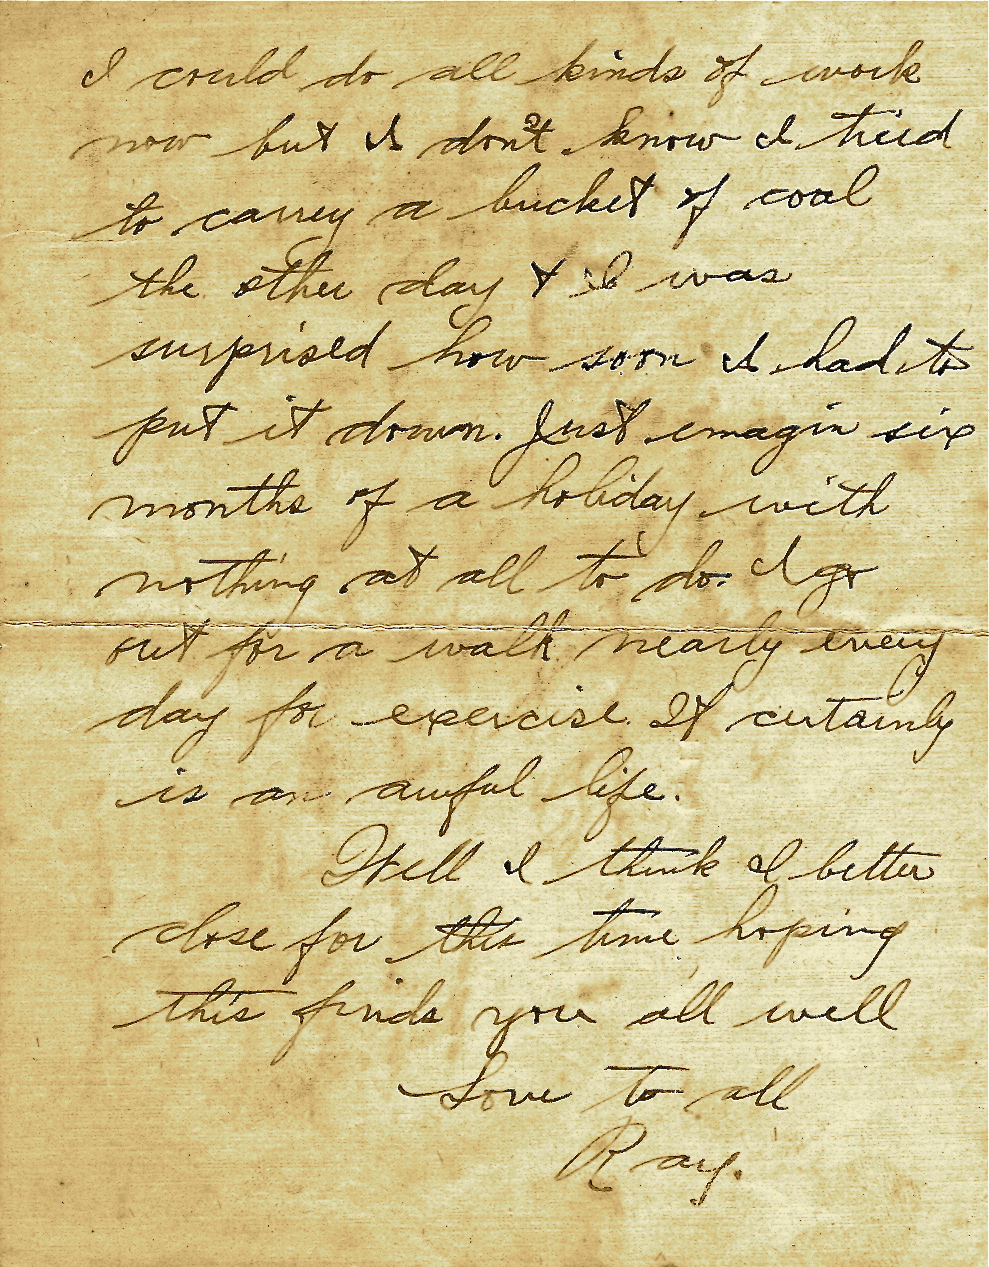 I could do all kinds of work
now but I don't know I tried
to carrey a bucket of coal
the other day & I was
surprised how soon I had to
put it down. Just emagin six
months of a holiday with
nothing at all to do. I go
out for a walk nearly every
day for exercise. It certainly
is an awful life.
Well I think I better
close for this time, hoping
this finds you all well
Love to all
Ray.